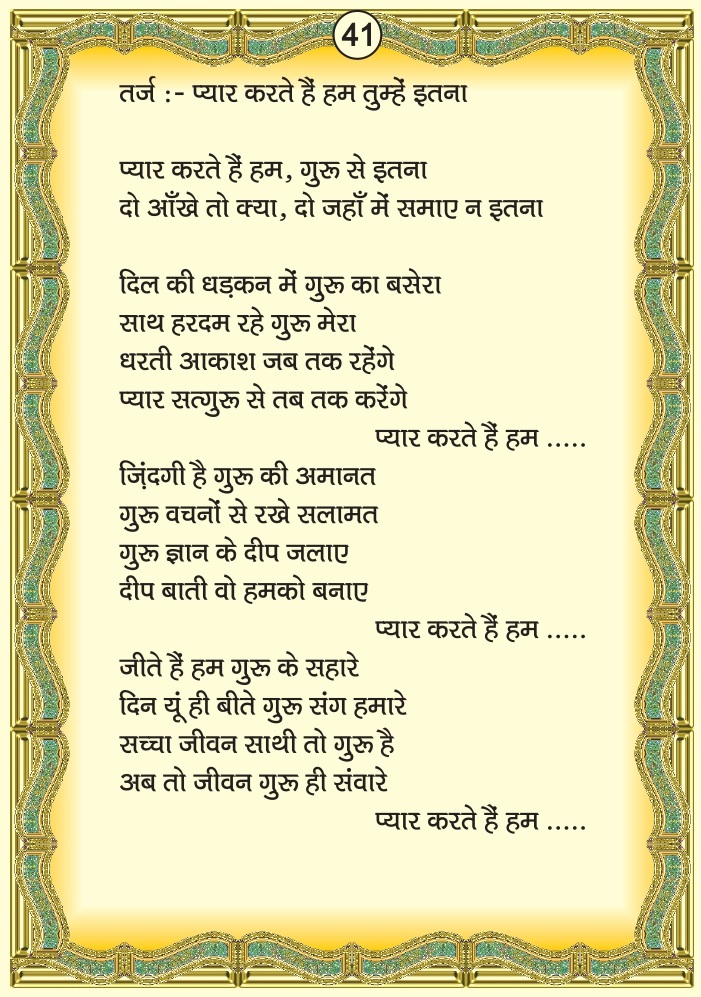 41
तर्ज :- प्यार करते हैं हम तुम्हें इतना
प्यार करते हैं हम, गुरू से इतना
दो आँखे तो क्या, दो जहाँ में समाए न इतना
दिल की धड़कन में गुरू का बसेरा
साथ हरदम रहे गुरू मेरा
धरती आकाश जब तक रहेंगे
प्यार सत्गुरू से तब तक करेंगे
प्यार करते हैं हम .....
ज़िंदगी है गुरू की अमानत
गुरू वचनों से रखे सलामत
गुरू ज्ञान के दीप जलाए
दीप बाती वो हमको बनाए
प्यार करते हैं हम .....
जीते हैं हम गुरू के सहारे
दिन यूं ही बीते गुरू संग हमारे
सच्चा जीवन साथी तो गुरू है
अब तो जीवन गुरू ही संवारे
प्यार करते हैं हम .....